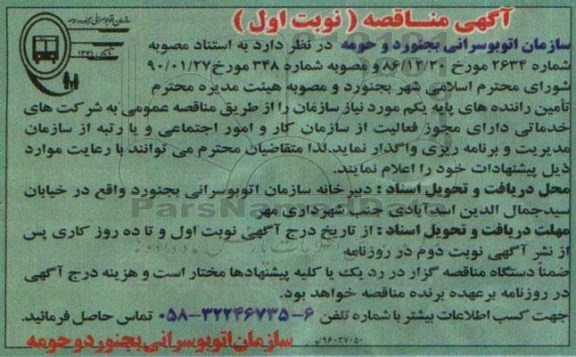 آگهی مناقصه ( نوبت اول )
سازمان اتوبوسرانی بجنورد و حومه
سازمان اتوبوسرانی بجنورد و حومه در نظر دارد به استناد مصوبه
شماره ۲۶۳۴ مورخ ۸۶/۱۲/۲۰ و مصوبه شماره ۳۴۸ مورخ ۹۰/۰۱/۲۷
شورای محترم اسلامی شهر بجنورد و مصوبه هیئت مدیره محترم
تأمین راننده های پایه یکم مورد نیاز سازمان را از طریق مناقصه عمومی به شرکت های
خدماتی دارای مجوز فعالیت از سازمان کار و امور اجتماعی و یا رتبه از سازمان
مدیریت و برنامه ریزی واگذار نماید.لذا متقاضیان محترم می توانند با رعایت موارد
ذیل پیشنهادات خود را اعلام نمایند.
محل دریافت و تحویل اسناد : دبیرخانه سازمان اتوبوسرانی بجنورد واقع در خیابان
سیدجمال الدین اسدآبادی جنب شهرداری مهر
مهلت دریافت و تحویل اسناد : از تاریخ درج آگهی نوبت اول و تا ده روز کاری پس
از نشر آگهی نوبت دوم در روزنامه
ضمناً دستگاه مناقصه گزار در رد یک یا کلیه پیشنهادها مختار است و هزینه درج آگهی
در روزنامه برعهده برنده مناقصه خواهد بود.
جهت کسب اطلاعات بیشتر با شماره تلفن ۶-۳۲۲۴۶۷۳۵-۰۵۸ تماس حاصل فرمائید.
سازمان اتوبوسرانی بجنورد و حومه
ParsNamadData